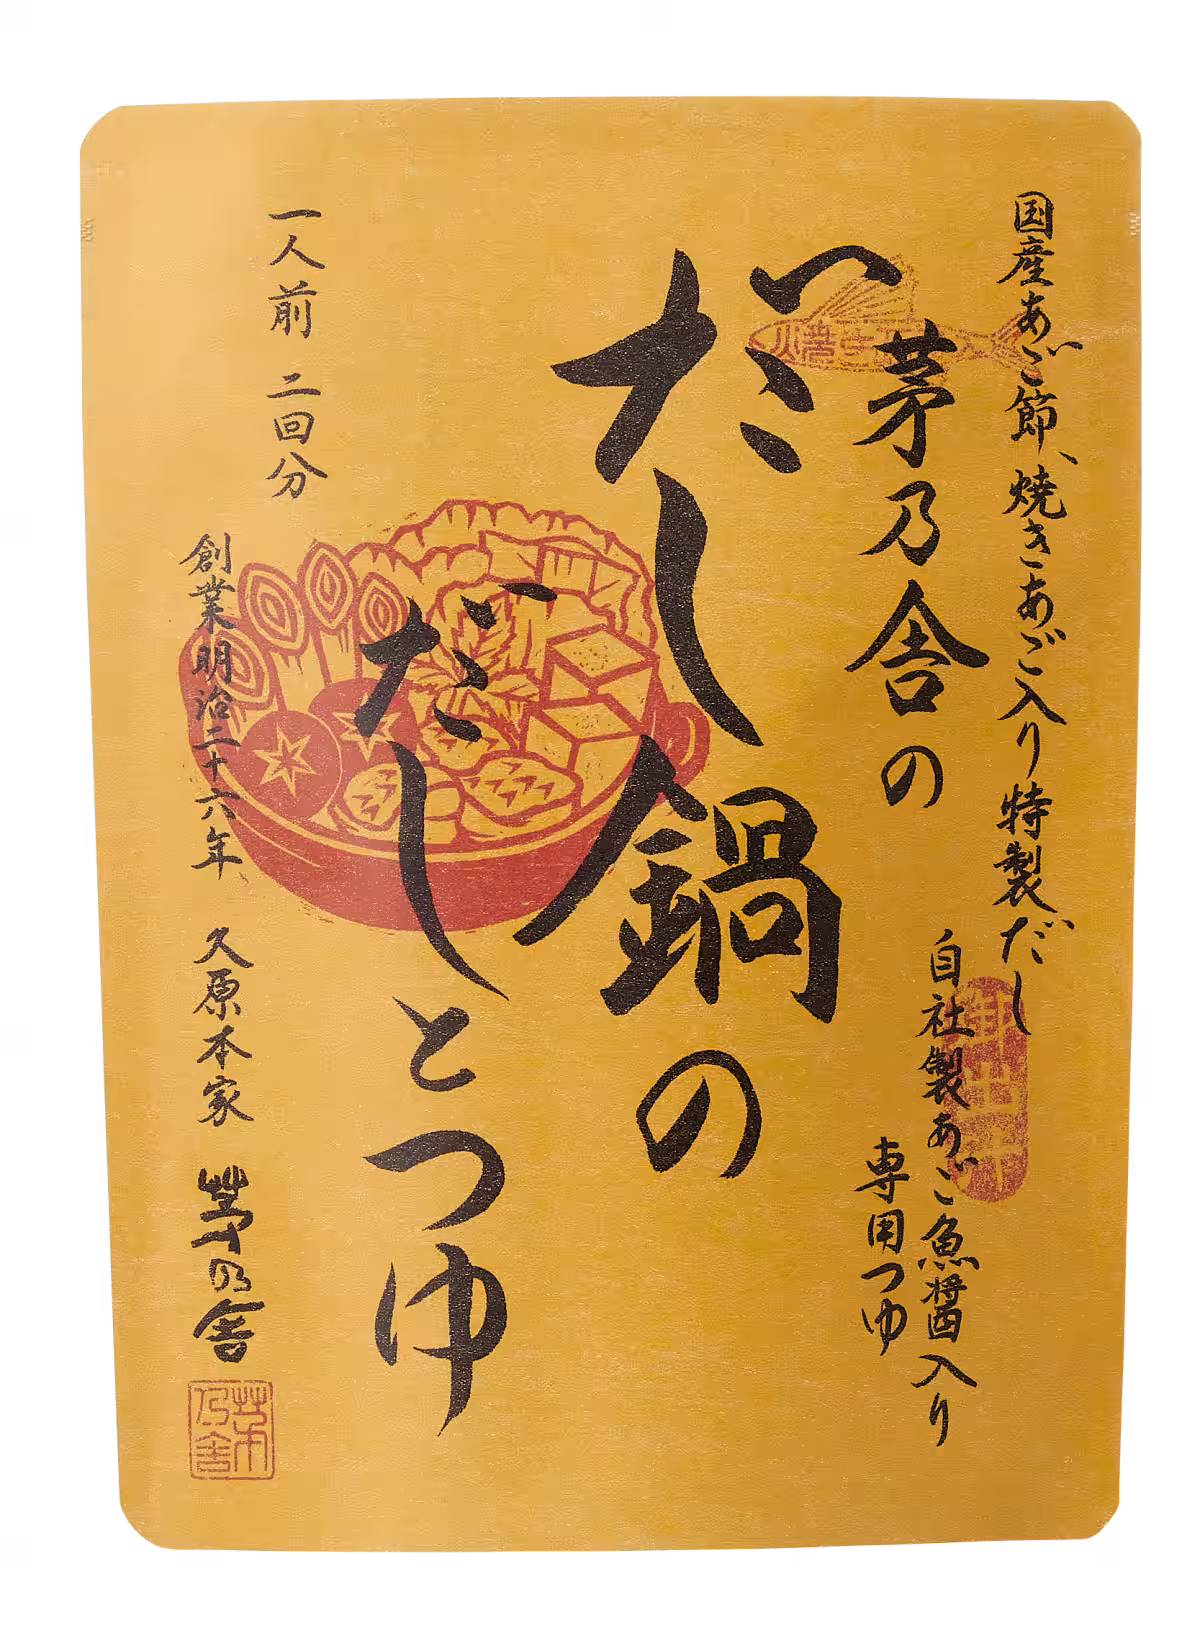 国産あご節、焼きあご入り特製だし
自社製あご魚醤入り
専用つゆ
茅乃舎の
だし鍋の
だしとつゆ
一人前 二回分
創業明治二十六年 久原本家 茅乃舎
茅乃舎